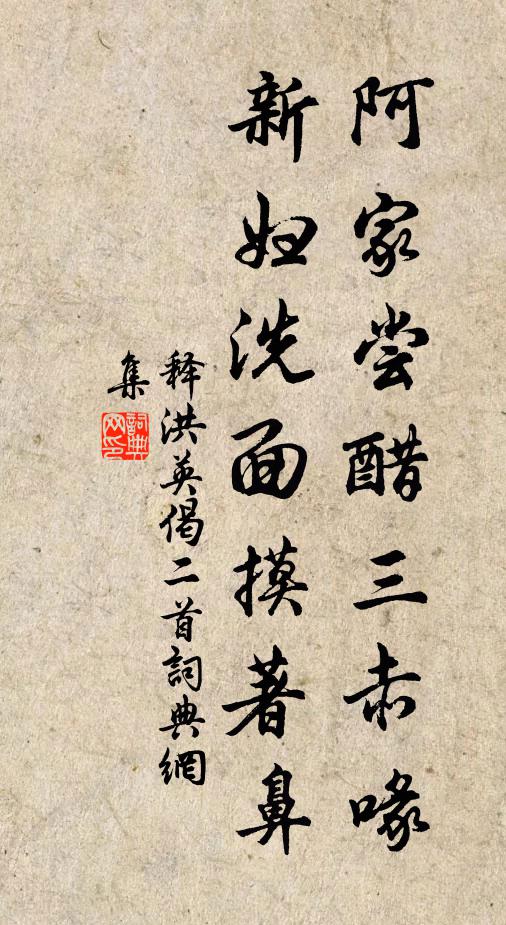 阿家尝醋三赤喙
新妇洗面摸著鼻
释洪英偈二首詞典網
集
詞典
网印